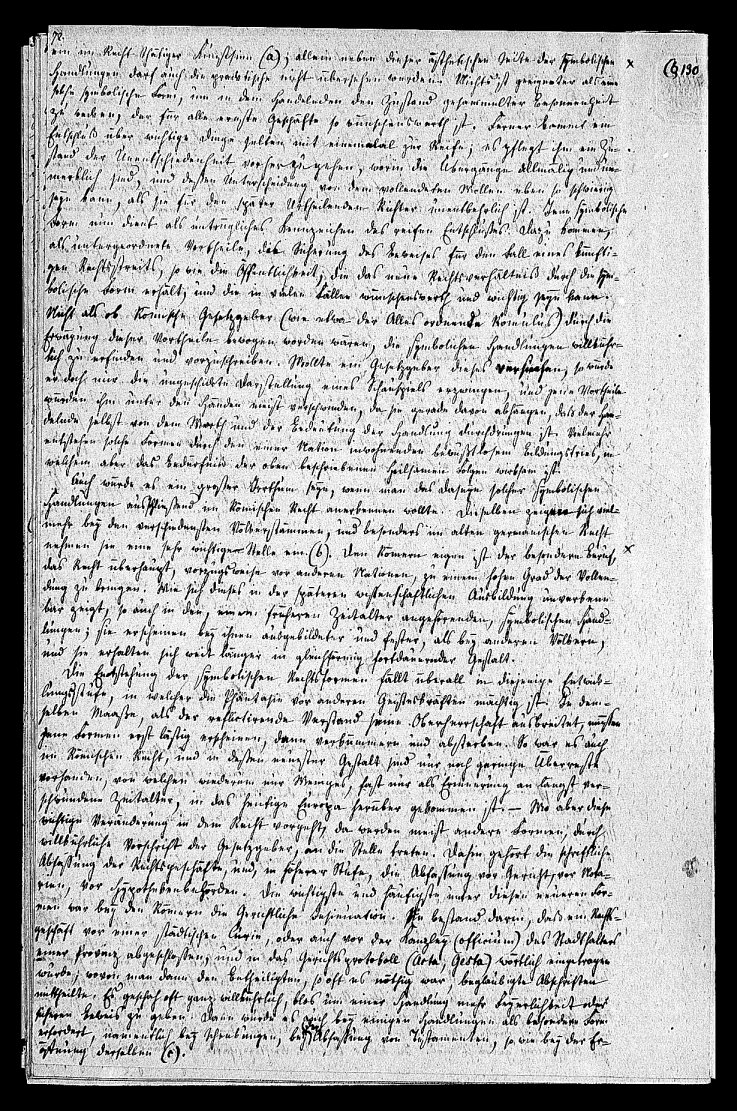 72.
ein im Recht thätiger Kunstsinn (a); allein neben dieser ästhetischen Seite der symbolischen x
(§ 130
Handlungen darf auch die praktische nicht übersehen werden. Nichts ist geeigneter als eine
solche symbolische Form, um in dem Handelnden den Zustand gesammelter Besonnenheit
zu wecken, der für alle ernste Geschäfte so wünschenswerth ist. Ferner kommt ein
Entschluß über wichtige Dinge selten mit einemmal zur Reife; es pflegt ihm ein Zu-
stand der Unentschiedenheit vorher zu gehen, worin die Übergänge allmälig und un-
merklich sind, und dessen Unterscheidung von dem vollendeten Wollen eben so schwierig
seyn kann, als sie für den später urtheilenden Richter unentbehrlich ist. Jene symbolische
Form nun dient als untrügliches Kennzeichen des reifen Entschlusses. Dazu kommen,
als untergeordnete Vortheile, die Sicherung des Beweises für den Fall eines künfti-
gen Rechtsstreits, so wie die Öffentlichkeit, die das neue Rechtsverhältniß durch die sym-
bolische Form erhält, und die in vielen Fällen wünschenswerth und wichtig seyn kann.
Nicht als ob Römische Gesetzgeber (wie etwa der Alles ordnende Romulus) durch die
Erwägung dieser Vortheile bewogen worden wären, die symbolischen Handlungen willkühr-
lich zu erfinden und vorzuschreiben. Wollte ein Gesetzgeber dieses versuchen, so würde
er doch nur die ungeschickte Darstellung eines Schauspiels erzwingen, und jene Vortheile
würden ihm unter den Händen meist verschwinden, da sie gerade davon abhangen, daß der Han-
delnde selbst von dem Werth und der Bedeutung der Handlung durchdrungen ist. Vielmehr
entstehen solche Formen durch den einer Nation inwohnenden bewußtlosen Bildungstrieb, in
welchem aber das Bedürfniß der oben beschriebenen heilsamen Folgen wirksam ist.
Auch würde es ein großer Irrthum seyn, wenn man das Daseyn solcher symbolischen
Handlungen ausschließend im Römischen Recht anerkennen wollte. Dieselben zeigen sich viel-
mehr bey den verschiedensten Völkerstämmen, und besonders im alten germanischen Recht
nehmen sie eine sehr wichtige Stelle ein (b). Den Römern eigen ist der besondere Beruf, x
das Recht überhaupt, vorzugsweise vor anderen Nationen, zu einem hohen Grad der Vollen-
dung zu bringen. Wie sich dieses in der späteren wissenschaftlichen Ausbildung unverkenn-
bar zeigt, so auch in den, einem früheren Zeitalter angehörenden, symbolischen Hand-
lungen; sie erscheinen bey ihnen ausgebildeter und fester, als bey anderen Völkern,
und sie erhalten sich weit länger in gleichförmig fortdauernder Gestalt.
Die Entstehung der symbolischen Rechtsformen fällt überall in diejenige Entwick-
lungsstufe, in welcher die Phantasie vor anderen Geisteskräften mächtig ist. In dem-
selben Maaße, als der reflectirende Verstand seine Oberherrschaft ausbreitet, müssen
jene Formen erst lästig erscheinen, dann verkümmern und absterben. So war es auch
im Römischen Recht, und in dessen neuester Gestalt sind nur noch geringe Überreste
vorhanden, von welchen wiederum nur Weniges, fast nur als Erinnerung an längst ver-
schwundene Zeitalter, in das heutige Europa herüber gekommen ist. — Wo aber diese
wichtige Veränderung in dem Recht vorgeht, da werden meist andere Formen, durch
willkührliche Vorschrift der Gesetzgeber, an die Stelle treten. Dahin gehört die schriftliche
Abfassung der Rechtsgeschäfte, und, in höherer Stufe, die Abfassung vor Gericht, vor Nota-
rien, vor Hypothekenbehörden. Die wichtigste und häufigste unter diesen neueren For-
men war bey den Römern die gerichtliche Insinuation. Sie bestand darin, daß ein Rechts-
geschäft vor einer städtischen Curie, oder auch vor der Kanzley (officium) des Statthalters
einer Provinz abgeschlossen, und in das Gerichtsprotokoll (Acta, Gesta) wörtlich eingetragen
wurde, wovon man dann den Betheiligten, so oft es nöthig war, beglaubigte Abschriften
mittheilte. Es geschah oft ganz willkührlich, blos um einer Handlung mehr Feyerlichkeit oder
sicheren Beweis zu geben. Dann wurde es auch bey einigen Handlungen als besondere Form
erfordert, namentlich bey Schenkungen, bey Abfassung von Testamenten, so wie bey der Er-
öffnung derselben (c).